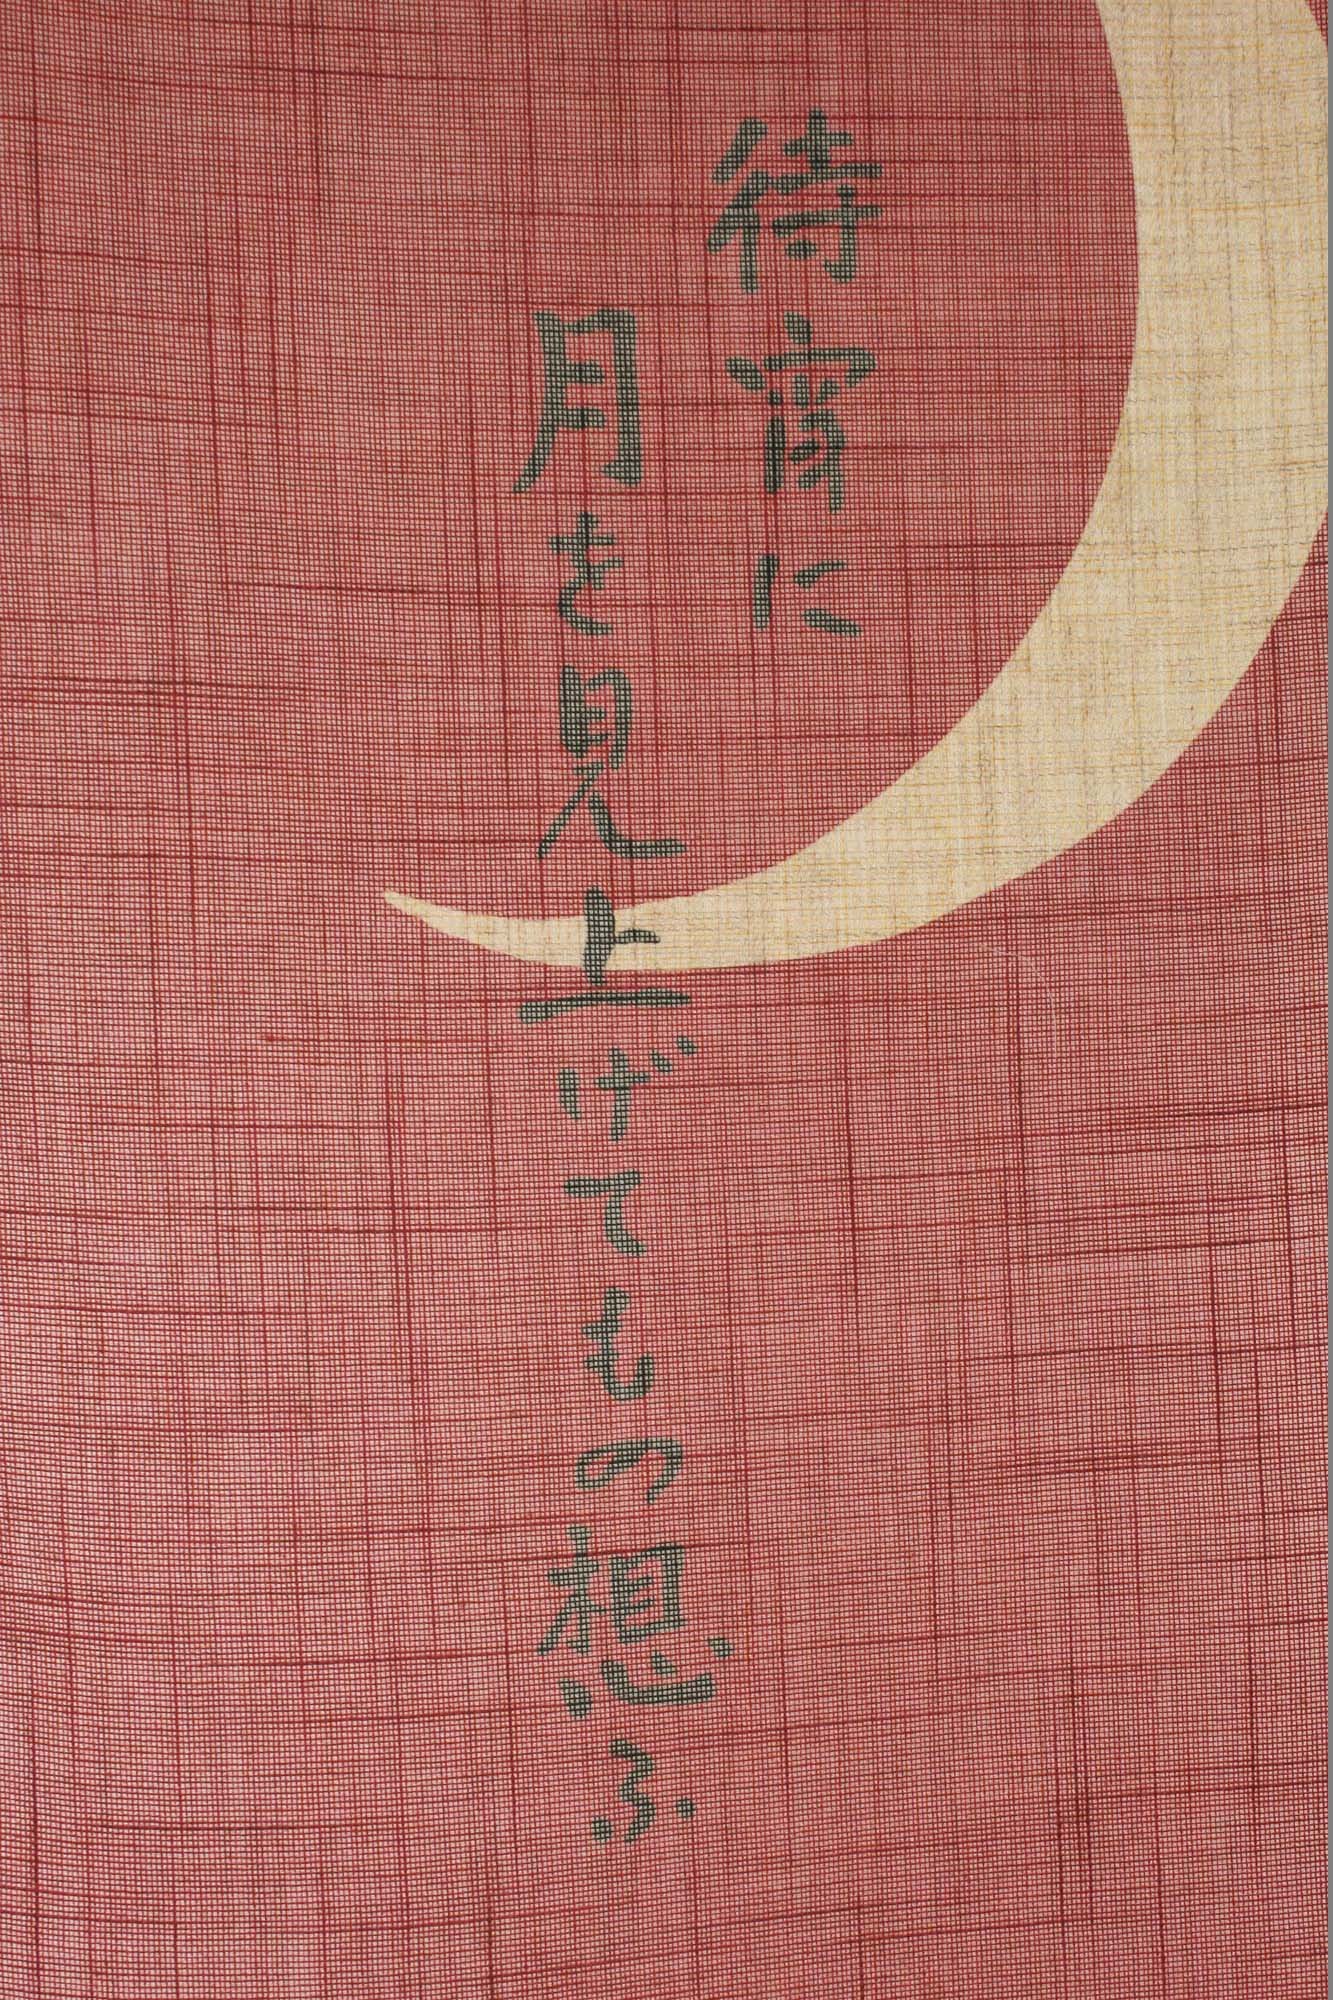 待宵に
月を見上げてもの想ふ